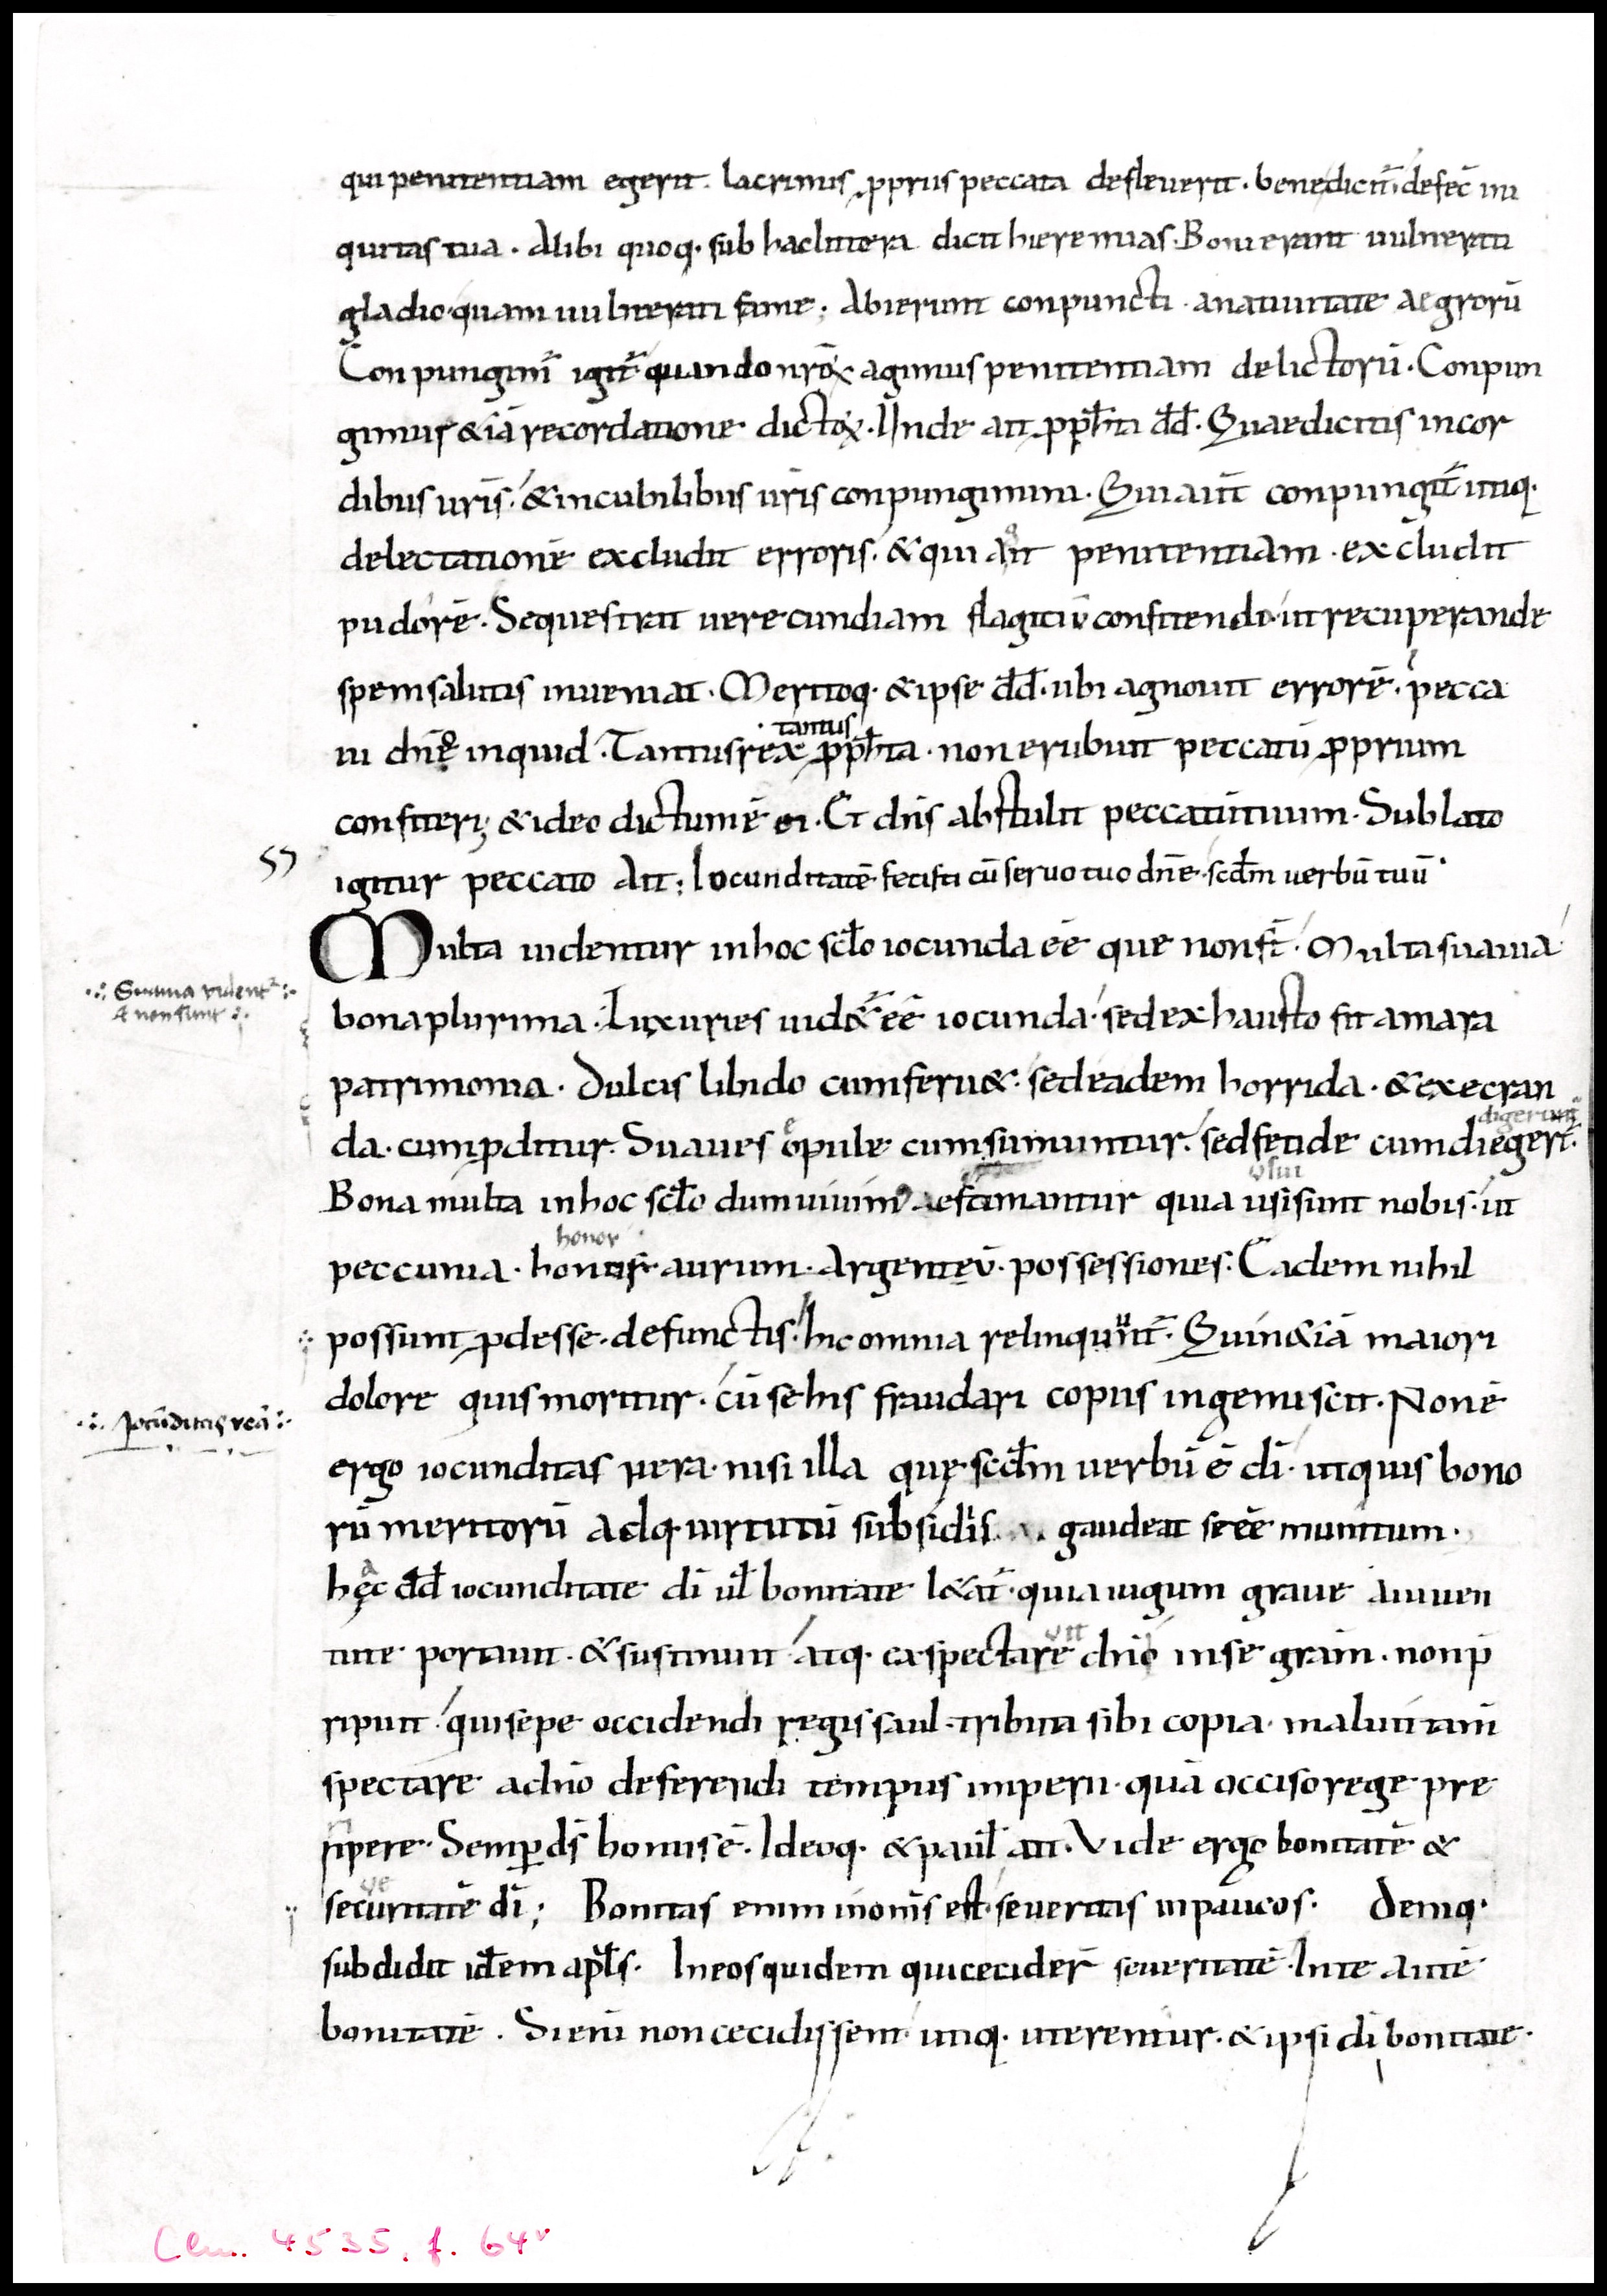 qui penitentiam egerit. lacrimis ꝓpriis peccata defleuerit · benedicit͛ı defec̄ ini
quitas tua · Alibi quoq· sub hac littera dicit hieremias · Boni erant uulnerati
gladio · quam uulnerati fame ; Abierunt conpuncti · anatiuitate aegrorū
Conpungim͛ igit͛ quando nr̄oꝝ agimus penitentiam delictorū · Conpun
gimur & iā recordatione dictoꝝ · Unde ait ꝓph̄ta dd̄ · Quae dicitis in cor
dibus ur̄is · & in cubilibus ur̄is conpungimini · Qui aut̄ conpungit͛ utiq·
delectationē excludit erroris · & qui ait penitentiam · excludit
pudorē · Sequestrat uerecundiam flagitiū confitendi · ut recuperande
spem salutis inueniat · Meritoq· & ipse dd̄ · ubi agnouit errorē · pecca
tantus
ui dn̄e inquid · Tantus rex ꝓph̄ta · non erubuit peccatū ꝓprium
confiteri ; & ideo dictum ē ei · Et dn̄s abstulit peccatū tuum · Sublato
57
igitur peccato Ait ; Iocunditatē fecisti cū seruo tuo dn̄e · scd̄m uerbū tuū
Multa uidentur in hoc scl̄o iocunda eē que non st̄ · Multa suauia
·:· Suauia vident͛ ·:·
& non sunt ·:·
bona plurima · Luxuries uid&͛ eē iocunda · sed exhausto fit amara
patrimonia · Dulcis libido cum feru& · sed eadem horrida · & execran
digerunt͛
da · cum ꝓditur · Suaues epule cum sumuntur · sed fetide cum diegerr̄ ·
vsui
Bona multa in hoc scl̄o dum uiuim᾽ aestimantur quia usi sunt nobis · ut
honor
peccunia · honus · aurum · Argenteū · possessiones · Eadem nihil
possunt ꝓdesse · defunctis · hic omnia relinquunt͛ · Quin & iā maiori
dolore quis moritur · cū se his fraudari copiis ingemiscit · Non ē
·:· Jocūditas verā ·:·
ergo iocunditas uera · nisi illa quę scd̄m uerbū ē dī · ut quis bono
rū meritorū adq· uirtutū subsidiis gaudeat se eē munitum ·
hęc dd̄ iocunditate dī ul̄ bonitate l&at͛ · quia iugum graue a iuuen
vit
tute portauit · & sustinuit atq· exspectare dn̄o in se gr̄am · non p̄
ripuit · qui sepe occidendi regis saul · tributa sibi copia · maluit tam̄
spectare a dn̄o deferendi tempus imperii · quā occiso rege pre
ripere · Semꝑ ds̄ bonus ē · Ideoq· & paul̄ ait · Vide ergo bonitatē &
ve
securitatē dī ; Bonitas enim in om̄s est · seueritas in paucos · Deniq·
subdidit idem apl̄s · In eos quidem qui cecider̄ seueritatē · In te autē
bonitatē · Si eni̅ non cecidissent · utiq· uterentur · & ipsi dī bonitate ·
Clm. 4535, f. 64v